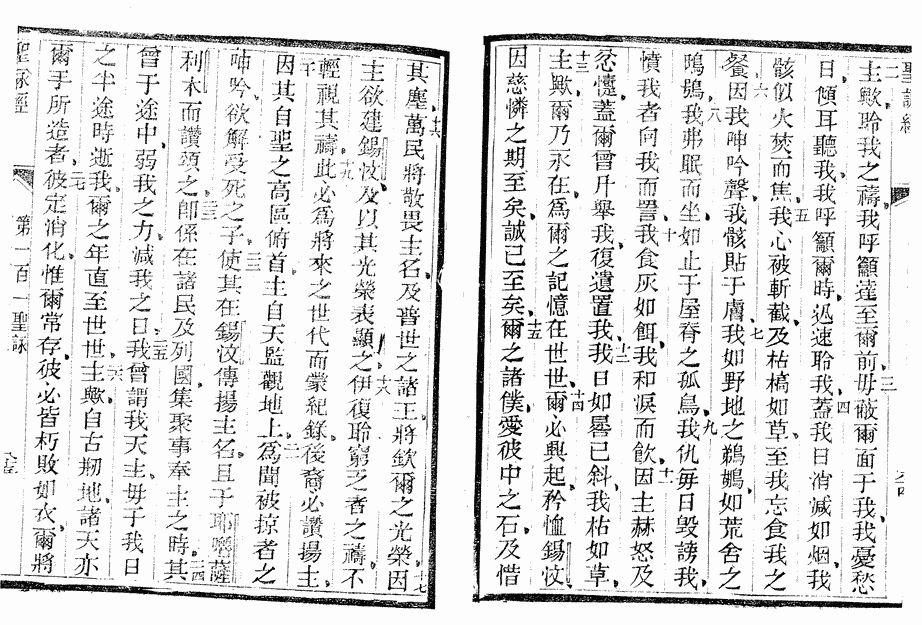 聖詠經
二主歟聆我之禱、我呼籲達至爾前、三毋蔽爾面于我、我憂愁
日、傾耳聽我、我呼籲爾時、迅速聆我、四蓋我日消減如烟、我
骸似火熒而焦、五我心被斬截、及枯槁如草、至我忘食我之
餐、六因我呻吟聲、我骸貼于膚、七我如野地之鵜鶘、如荒舍之
鴟鴞、八我弗眠而坐、如止于屋脊之孤鳥、九我仇毎日毀謗我、
憤我者向我而詈、十我食灰如餌、我和淚而飲、十一因主赫怒及
忿懥、蓋爾曾升舉我、復遺置我、十二我日如晷已斜、我枯如草、
十三主歟、爾乃永在、爲爾之記憶在世世、十四爾必興起、矜恤錫汶、
因慈憐之期至矣、誠已至矣、十五爾之諸僕、愛彼中之石、及惜
其塵、十六萬民將敬畏主名、及普世之諸王、將欽爾之光榮、十七因
主欲建錫汶、及以其光榮表顯之、十八伊復聆窮乏者之禱、不
輕視其禱、十九此必爲將來之世代而蒙紀錄、後裔必讚揚主、
二十因其自聖之高區俯首、主自天監觀地上、二一爲聞被掠者之
呻吟、欲解受死之子、二二使其在錫汶傳揚主名、且于耶嚕薩
利木而讚頌之、二三即係在諸民及列國集聚事奉主之時、二四其
曾于途中、弱我之力、減我之日、二五我曾謂我天主、毋于我日
之半途時逝我、爾之年直至世世、二六主歟、自古刱地、諸天亦
爾手所造者、二七彼定消化、惟爾常存、彼必皆朽敗如衣、爾將
聖詠經 第一百一聖詠